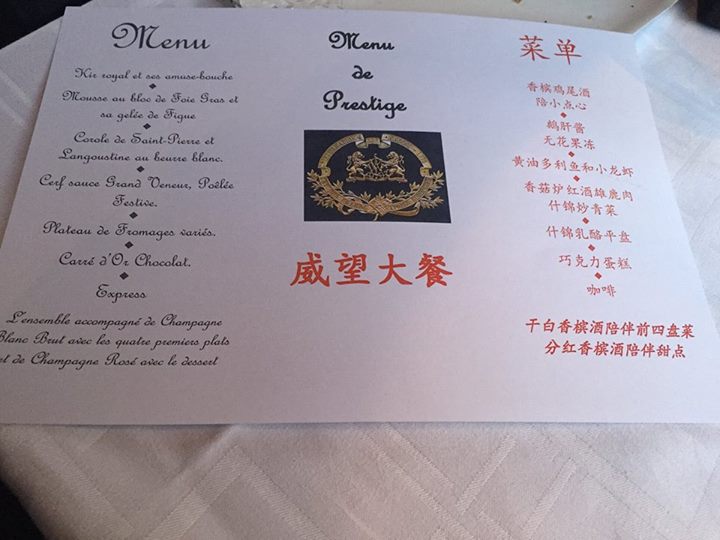 Menu
Kir royal et ses amuse-bouche
Mousse au bloc de Foie Gras et
sa gelée de Figue
Corole de Saint-Pierre et
Langoustine au beurre blanc.
Cerf sauce Grand Veneur, Poêlée
Festive.
Plateau de Fromages variés.
Carré d'Or Chocolat.
Express
L'ensemble accompagné de Champagne
Blanc Brut avec les quatre premiers plats
et de Champagne Rosé avec le dessert
Menu
de
Prestige
威望大餐
菜单
香槟鸡尾酒
陪小点心
鹅肝酱
无花果冻
黄油多利鱼和小龙虾
香菇炉红酒雄鹿肉
什锦炒青菜
什锦乳酪平盘
巧克力蛋糕
咖啡
干白香槟酒陪伴前四盘菜
分红香槟酒陪伴甜点